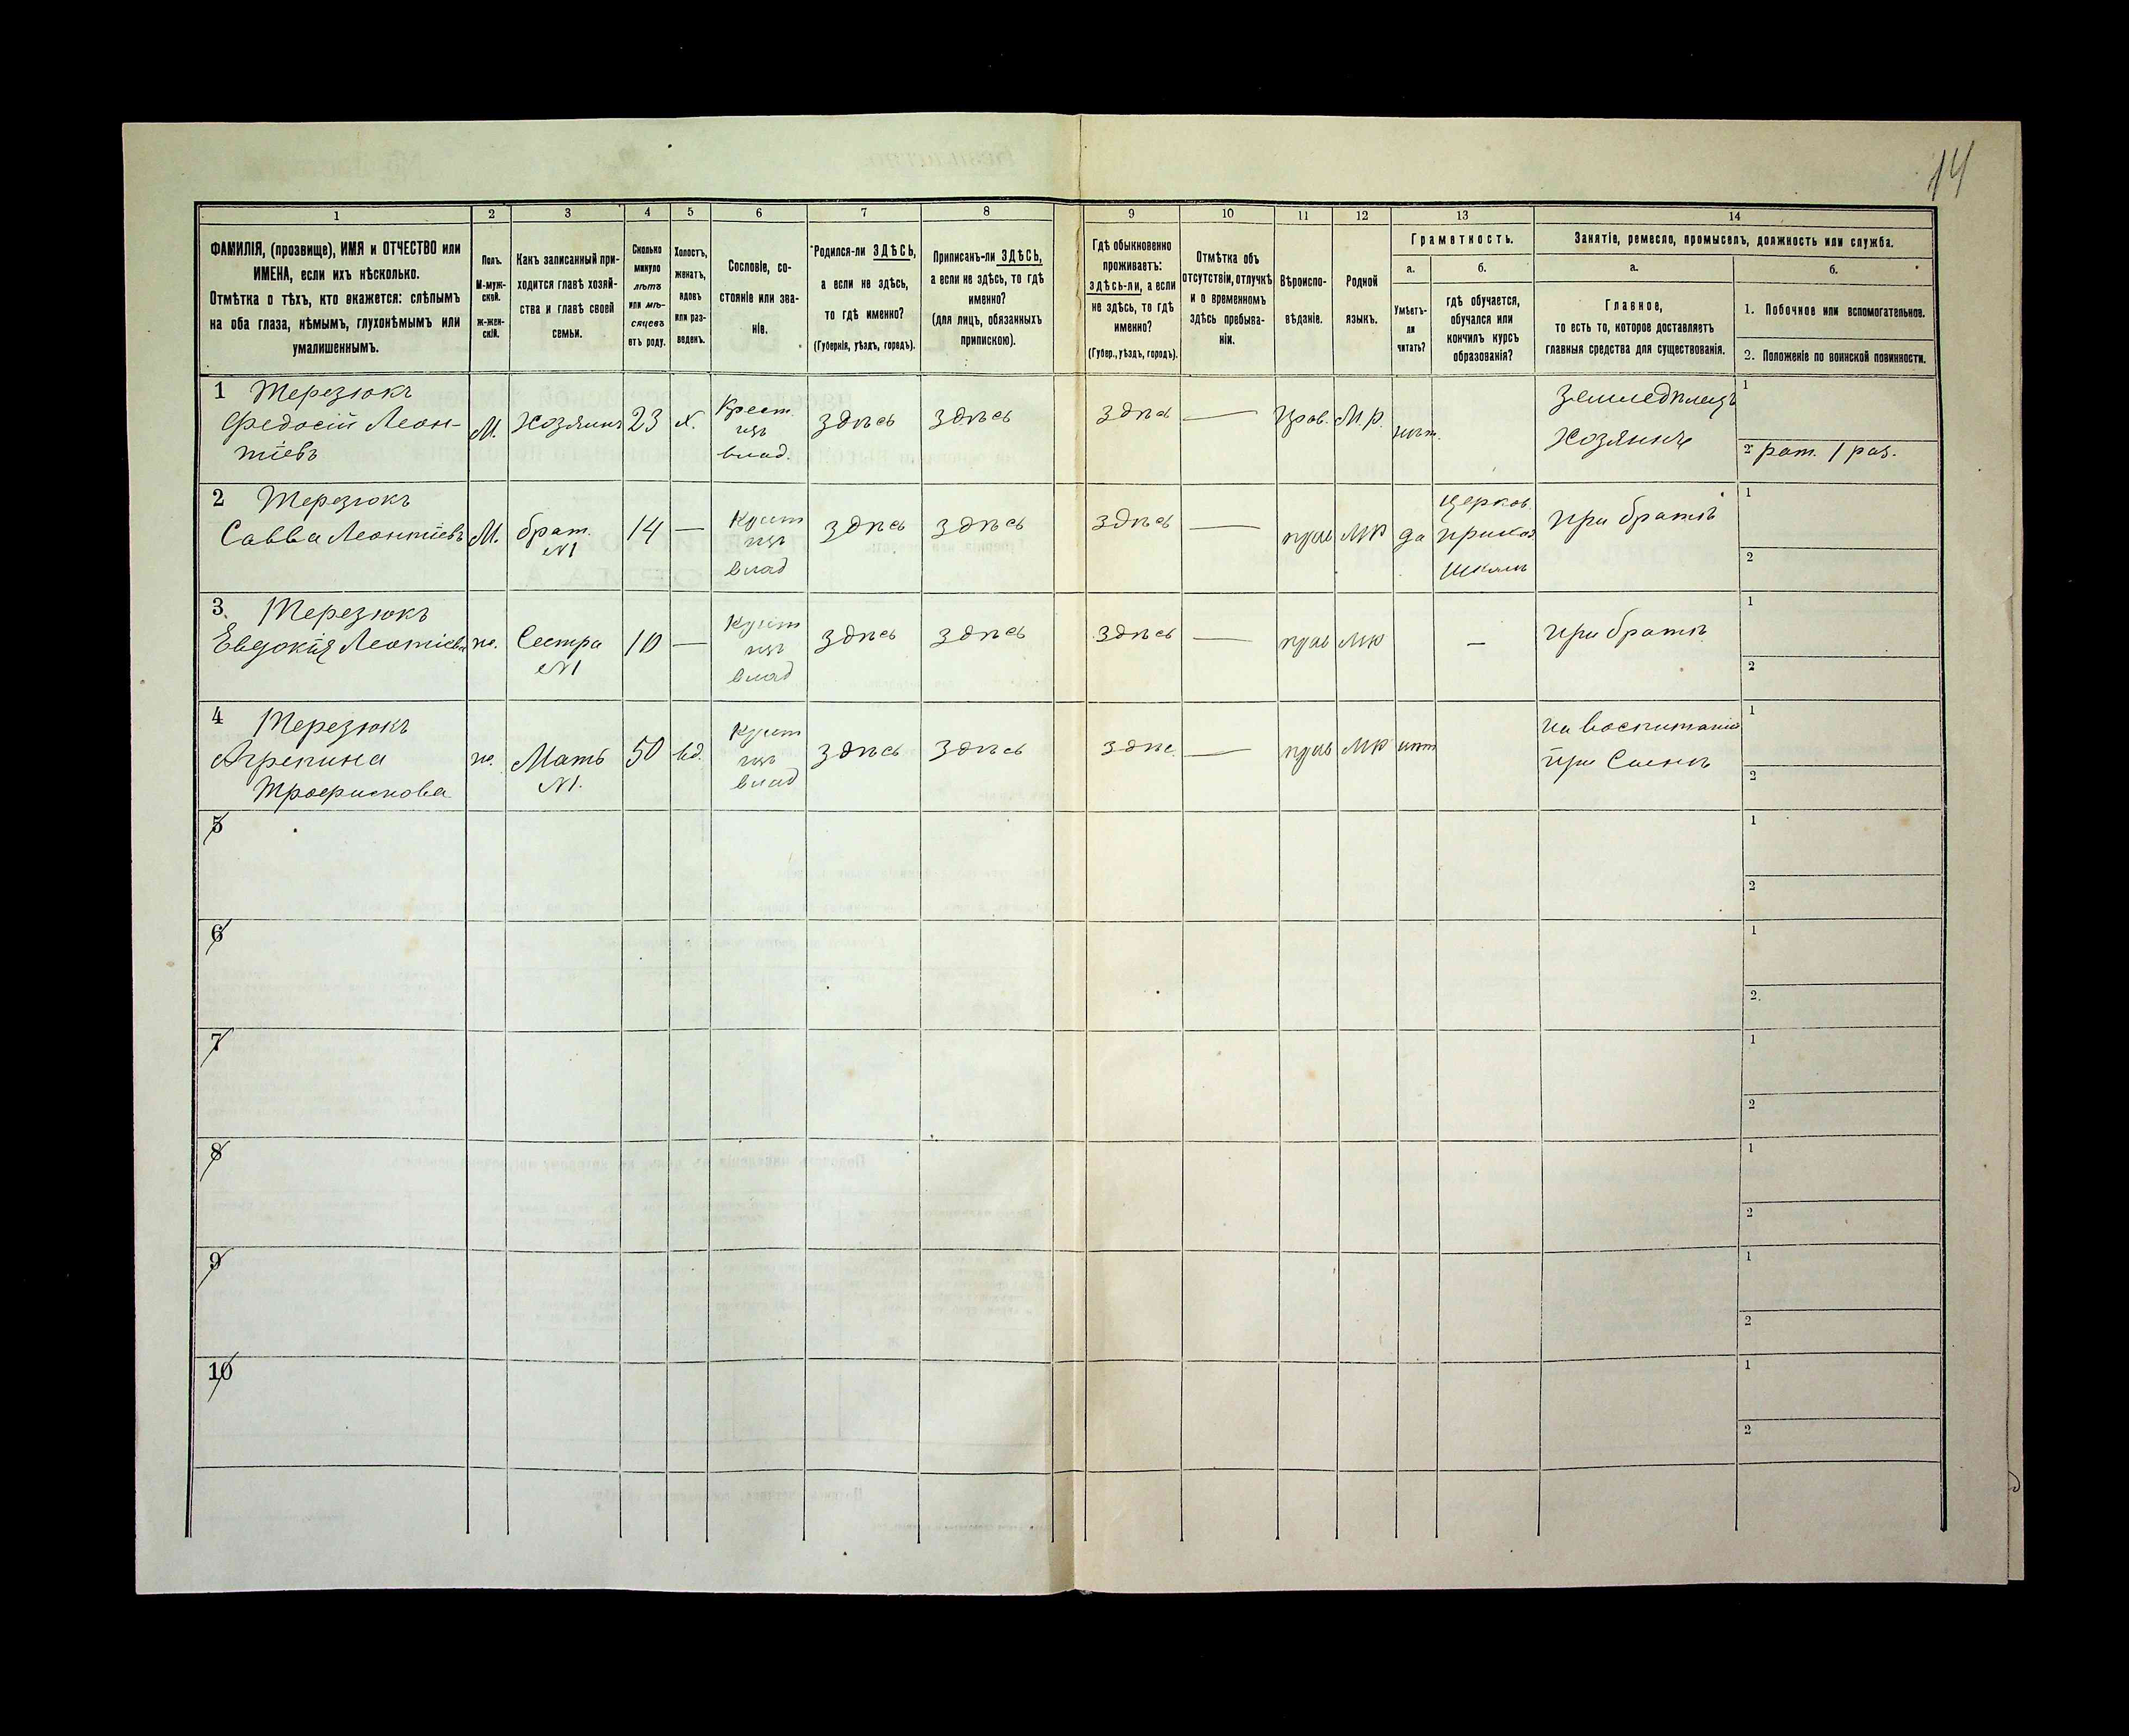 14
1 2 3 4 5 6 7 8 9 10 11 12 13 14
ФАМИЛІЯ, (прозвище), ИМЯ и ОТЧЕСТВО или
ИМЕНА, если ихъ нѣсколько.
Отмѣтка о тѣхъ, кто окажется: слѣпымъ
на оба глаза, нѣмымъ, глухонѣмымъ или
умалишеннымъ.
Полъ.
М-муж-
ской.
ж-жен-
скій.
Какъ записанный при-
ходится главѣ хозяй-
ства и главѣ своей
семьи.
Сколько
минуло
лѣтъ
или мѣ-
сяцевъ
отъ роду.
Холостъ,
женатъ,
вдовъ
или раз-
веденъ.
Сословіе, со-
стояніе или зва-
ніе.
Родился-ли ЗДѢСЬ,
а если не здѣсь,
то гдѣ именно?
(Губернія, уѣздъ, городъ).
Приписанъ-ли ЗДѢСЬ,
а если не здѣсь, то гдѣ
именно?
(для лицъ, обязанныхъ
припискою).
Гдѣ обыкновенно
проживаетъ:
здѣсь-ли, а если
не здѣсь, то гдѣ
именно?
(Губер., уѣздъ, городъ).
Отмѣтка объ
отсутствіи, отлучкѣ
и о временномъ
здѣсь пребыва-
ніи.
Вѣроиспо-
вѣданіе.
Родной
языкъ.
Грамотность.
а.
Умѣетъ-
ли
читать?
б.
гдѣ обучается,
обучался или
кончилъ курсъ
образованія?
Занятіе, ремесло, промыселъ, должность или служба.
а.
Главное,
то есть то, которое доставляетъ
главныя средства для существованія.
б.
1. Побочное или вспомогательное.
2. Положеніе по воинской повинности.
1 Терезюкъ
Федосій Леон-
тіевъ
М.
Хозяинъ
23
х.
Крест.
изъ
влад.
здѣсь
здѣсь
здѣсь
—
Прав.
М. р.
нѣт.
Земледѣлецъ
Хозяинъ
1
2 рат. 1 раз.
2 Терезюкъ
Савва Леонтіевъ
М.
брат.
№1
14
—
Крест
изъ
влад
здѣсь
здѣсь
здѣсь
—
прав
МР
да
Церков.
приход
школѣ
при братѣ
1
2
3 Терезюкъ
Евдокія Леонтіева
ж.
Сестра
№1
10
—
Крест
изъ
влад
здѣсь
здѣсь
здѣсь
—
прав
МР
—
при братѣ
1
2
4 Терезюкъ
Агрепина
Трофимова
ж.
Мать
№1.
50
вд.
Крест
изъ
влад
здѣсь
здѣсь
здѣс
—
прав
МР
нѣт
на воспитаніи
при Сынѣ
1
2
5
1
2
6
1
2.
7
1
2
8
1
2
9
1
2
10
1
2